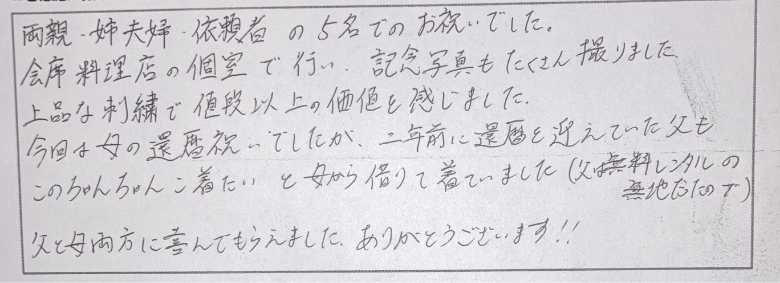 両親・姉夫婦・依頼者 の5名でのお祝いでした。
会席料理店の個室で行い、記念写真もたくさん撮りました
上品な刺繍で値段以上の価値を感じました。
今回は母の還暦祝いでしたが、二年前に還暦を迎えていた父も
このちゃんちゃんこ着たい と母から借りて着ていました(父は無料レンタルの
無地だったので)
父と母両方に喜んでもらえました。ありがとうございます!!